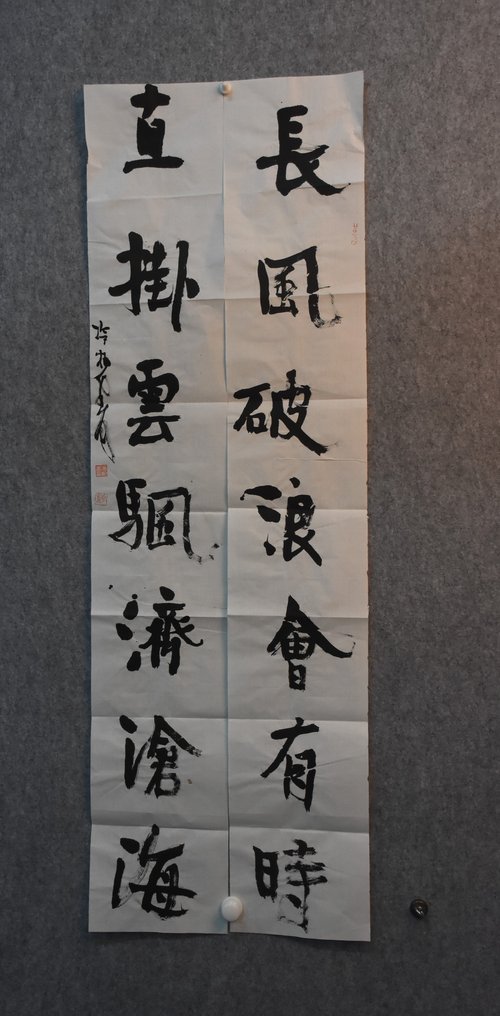 長風破浪會有時
直掛雲颿濟滄海